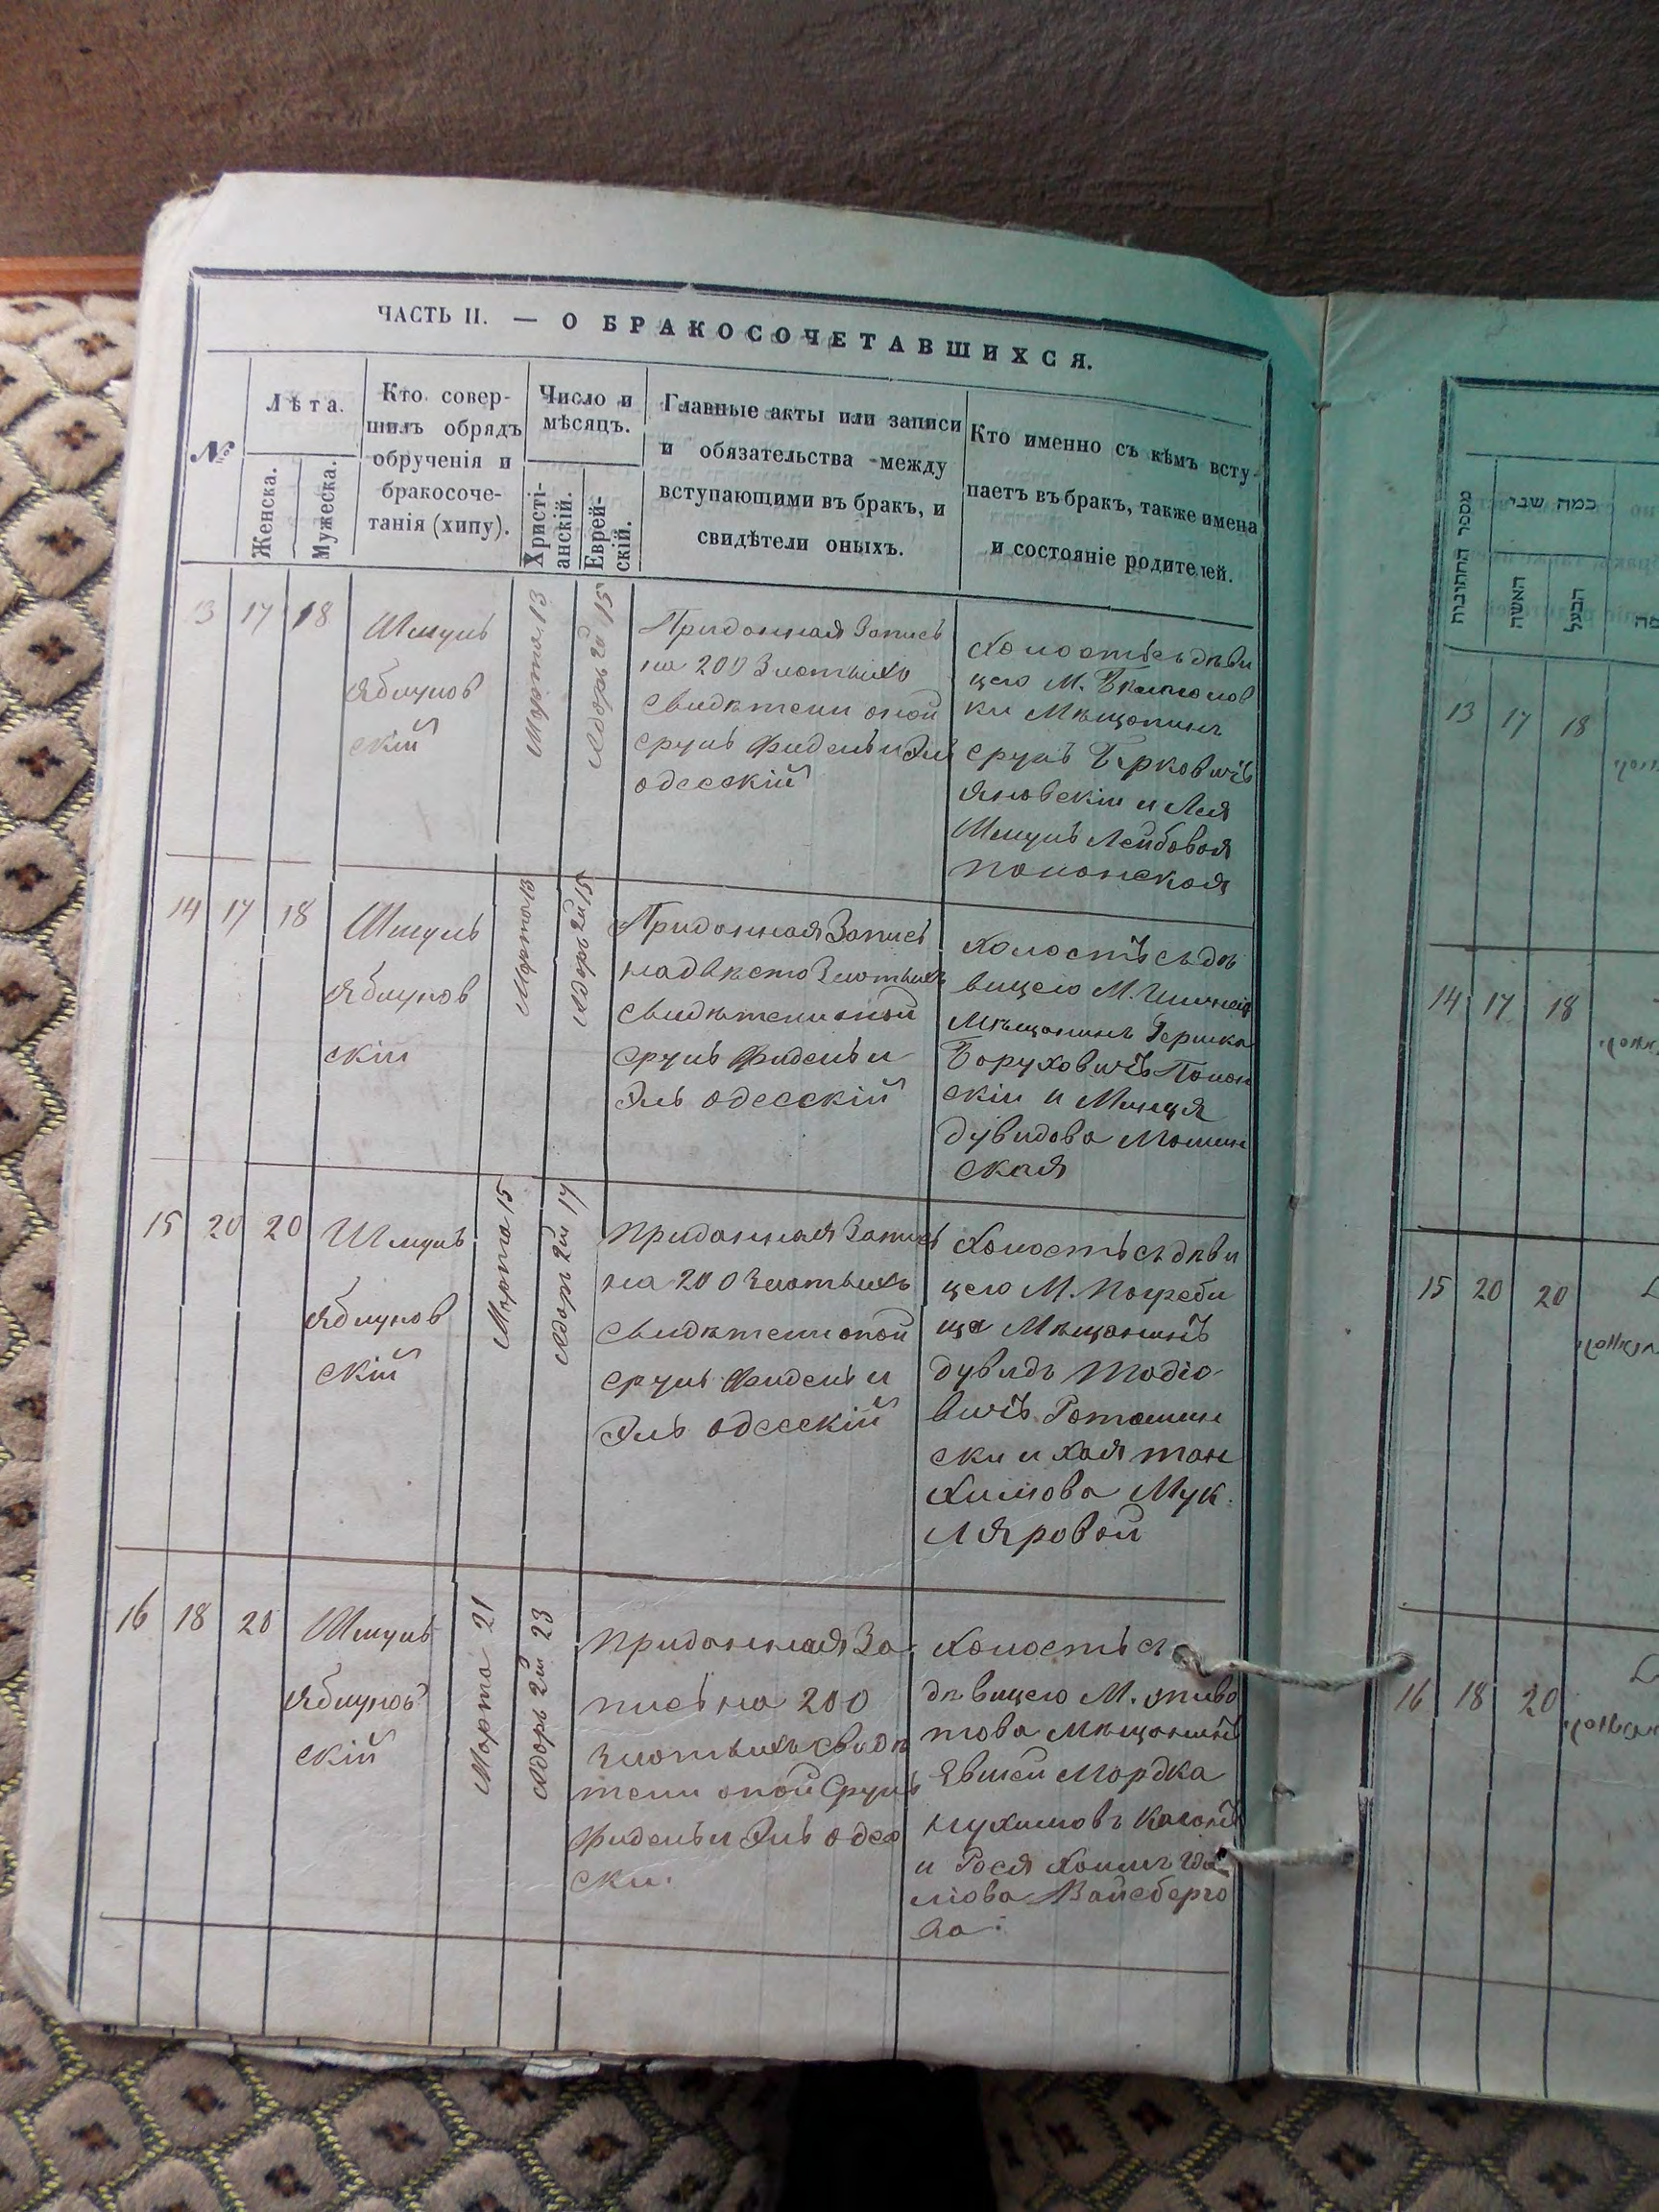 ЧАСТЬ II. — О БРАКОСОЧЕТАВШИХСЯ.
№
Лѣта.
Женска.
Мужеска.
Кто совер-
шилъ обрядъ
обрученія и
бракосоче-
танія (хипу).
Число и
мѣсяцъ.
Христі-
анскій.
Еврей-
скій.
Главные акты или записи
и обязательства между
вступающими въ бракъ, и
свидѣтели оныхъ.
Кто именно съ кѣмъ всту-
паетъ въ бракъ, также имена
и состояніе родителей.
13 17 18
Шмуль
Яблунов
скій
Марта 13
Адоръ 2й 15
Приданная Запись
на 200 Злотыхъ
свидѣтели оной
Сруль Фидель и Эль
одесскій
Холостъ съ дѣви
цею М.
ки Мѣщанинъ
Сруль Берковичъ
Яновскій и Лея
Шмуль Лейбовая
Полонская
14 17 18
Шмуль
Яблунов
скій
Марта 13
Адоръ 2й 15
Приданная Запись
на двѣсто Злотыхъ
свидѣтели оной
Сруль Фидель и
Эль одесскій
Холостъ съ дѣ
вицею М.
Мѣщанинъ Гершко
Боруховичъ Полон
скій и
Дувидова
ская
15 20 20
Шмуль
Яблунов
скій
Марта 15
Адоръ 2й 17
Приданная Запись
на 200 Злотыхъ
свидѣтели оной
Сруль Фидель и
Эль одесскій
Холостъ съ дѣви
цею М. Погреби
ща Мѣщанинъ
Дувидъ
вичъ
ски и Хая Тан
химова Мук
ляровой
16 18 20
Шмуль
Яблунов
скій
Марта 21
Адоръ 2й 23
Приданная За
пись на 200
Злотыхъ свидѣ
тели оной Сруль
Фидель и Эль одес
ски.
Холостъ съ
дѣвицею М. Живо
това Мѣщанинъ
Мордка
Нухимовъ
и Рося
Вайсберго
ва.
מספר החתונות
כמה שני
האשה
הבעל
13 17 18
14 17 18
15 20 20
16 18 20